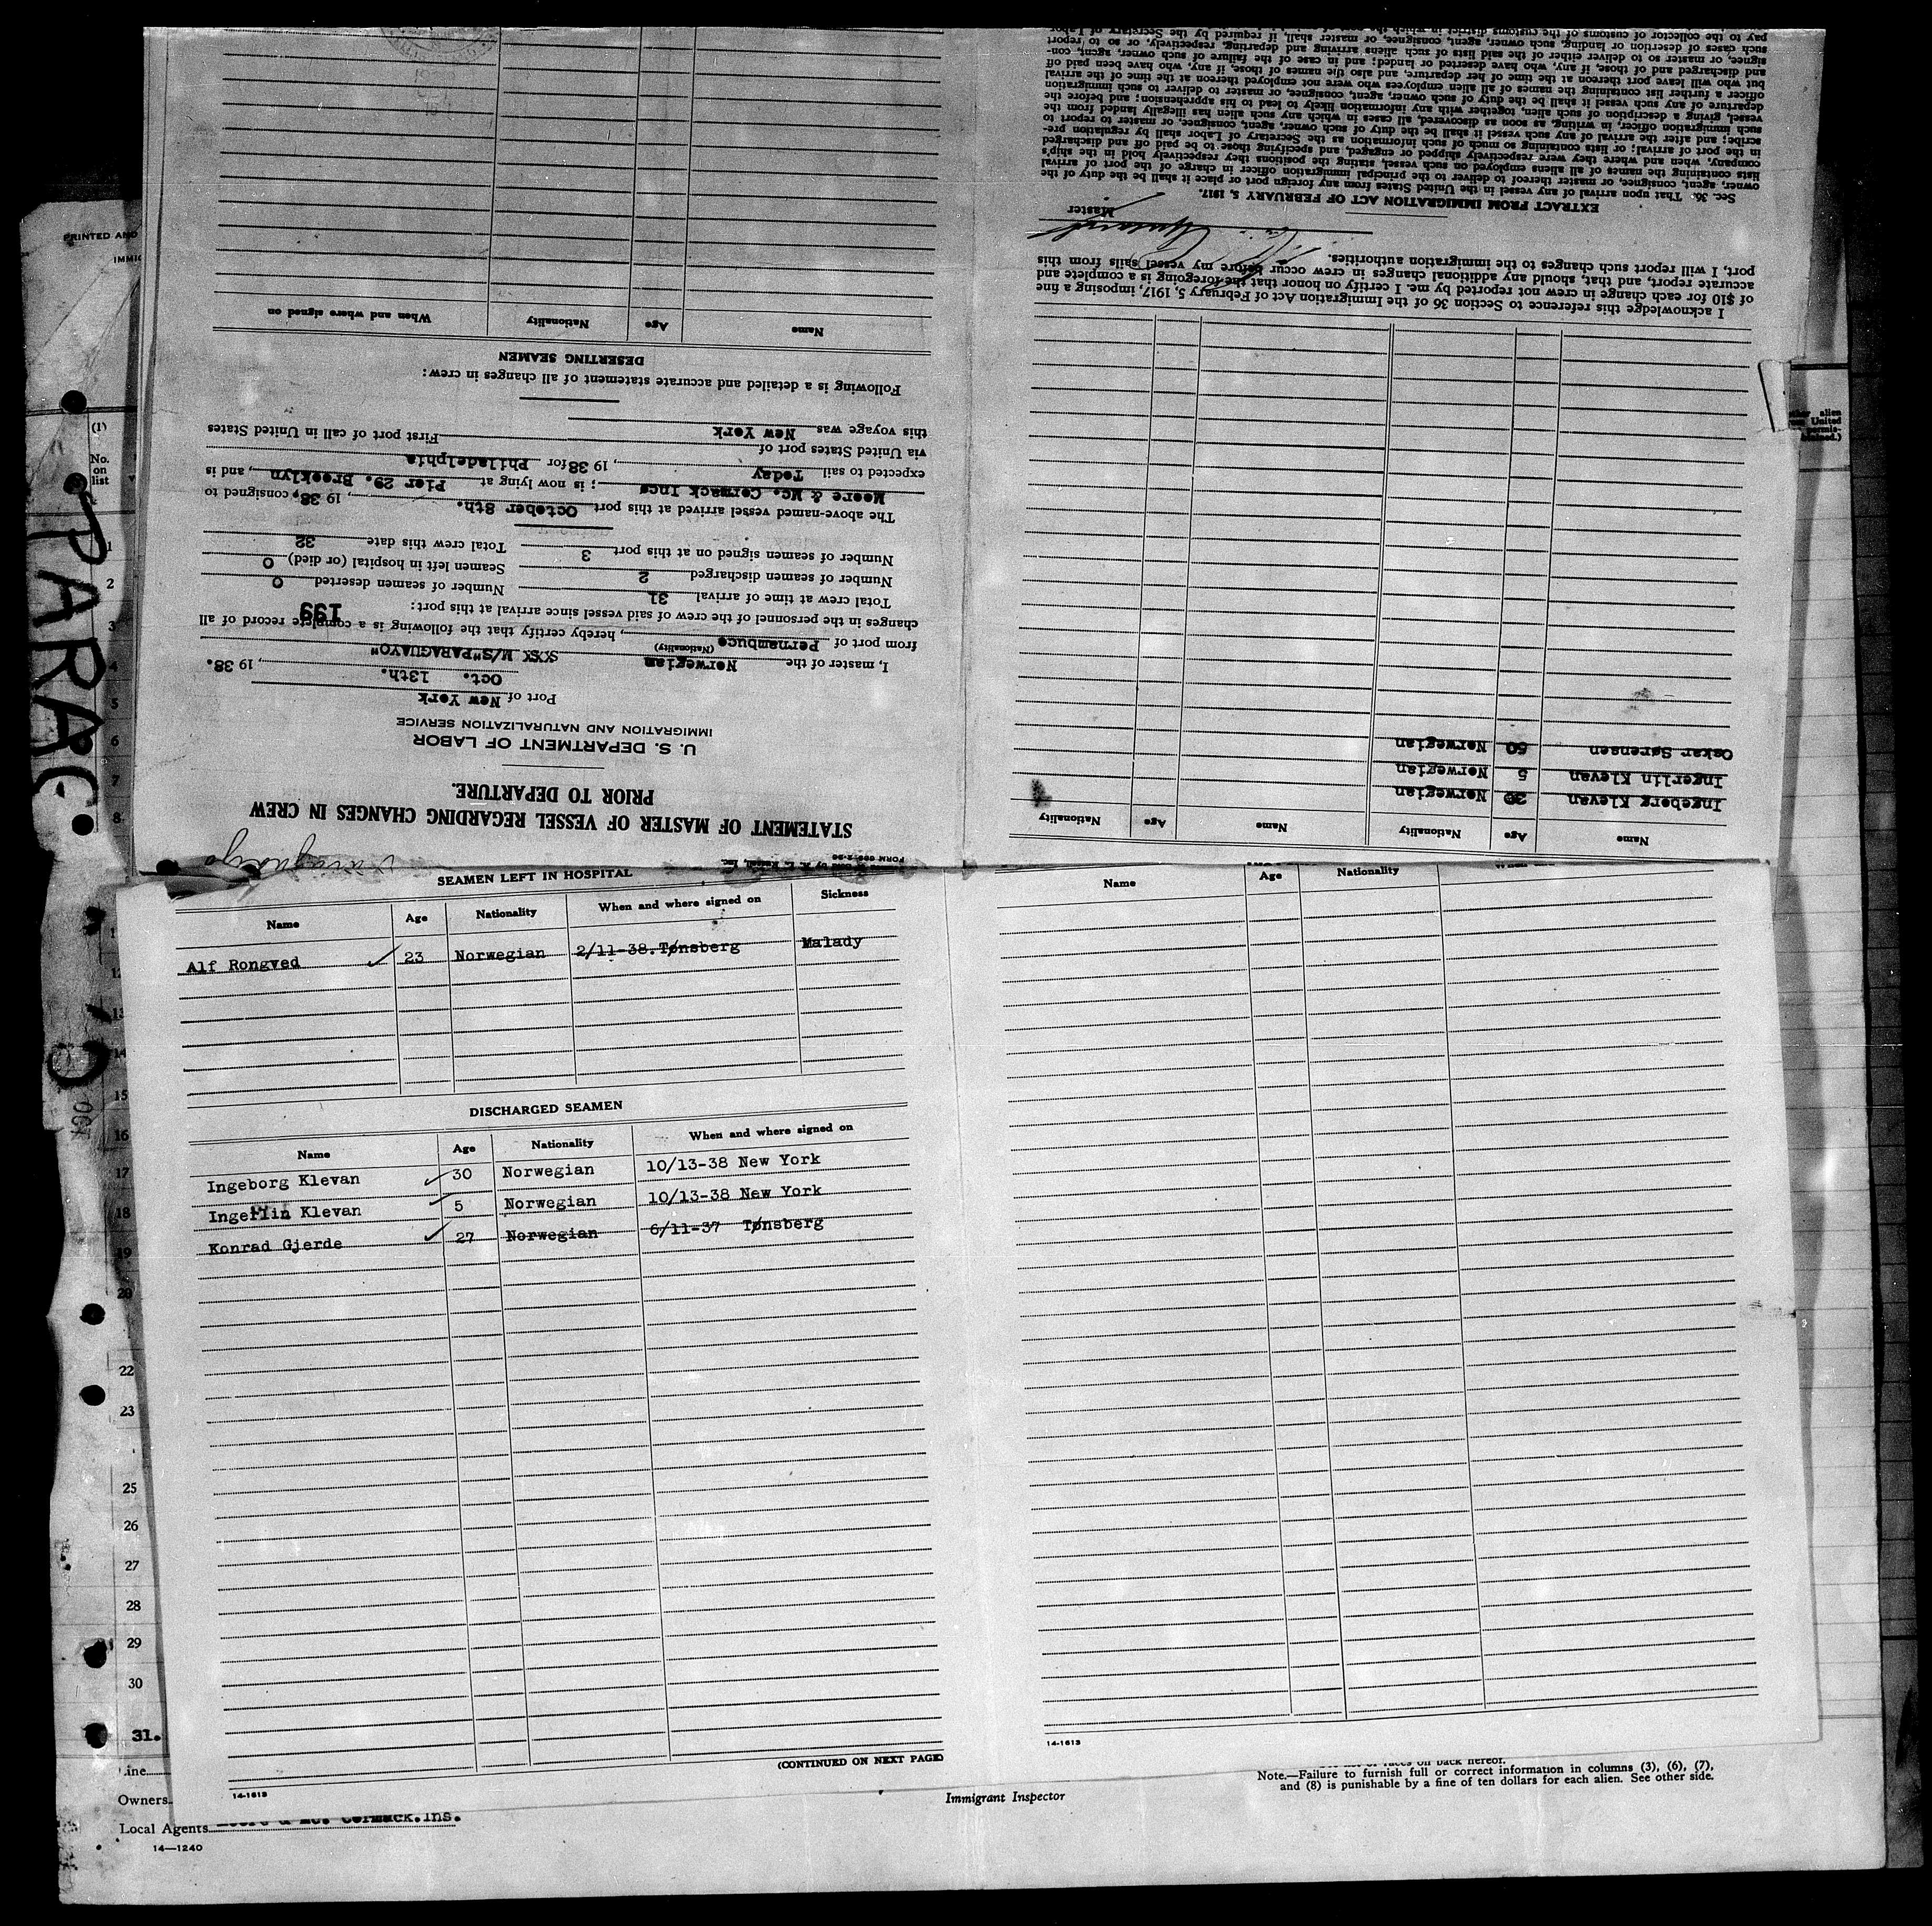 FORM 689-2-26 Sold by R. L. Russell, Inc.
Paraguayo
STATEMENT OF MASTER OF VESSEL REGARDING CHANGES IN CREW
PRIOR TO DEPARTURE.
U. S. DEPARTMENT OF LABOR
IMMIGRATION AND NATURALIZATION SERVICE
Port of New York
Oct. 13th. , 19 38.
I, master of the Norwegian M/S"PARAGUAYO"
(Nationality)
from port of Pernambuco , hereby certify that the following is a complete record of all
changes in the personnel of the crew of said vessel since arrival at this port: 199
Total crew at time of arrival 31 Number of seamen deserted 0
Number of seamen discharged 2 Seamen left in hospital (or died) 0
Number of seamen signed on at this port 3 Total crew this date 32
The above-named vessel arrived at this port October 8th. , 19 38, consigned to
Moore & Mc. Cormack Incs ; is now lying at Pier 29. Brooklyn , and is
expected to sail Today , 19 38 for Philadelphia
via United States port of First port of call in United States
this voyage was New York
Following is a detailed and accurate statement of all changes in crew:
DESERTING SEAMEN
Name Age Nationality When and where signed on
Name Age Nationality Name Age Nationality
Ingeborg Klevan 30 Norwegian
Ingerlin Klevan 5 Norwegian
Oskar Sørensen 60 Norwegian
I acknowledge this reference to Section 36 of the Immigration Act of February 5, 1917, imposing a fine
of $10 for each change in crew not reported by me. I certify on honor that the foregoing is a complete and
accurate report, and that, should any additional changes in crew occur before my vessel sails from this
port, I will report such changes to the immigration authorities.
Master
EXTRACT FROM IMMIGRATION ACT OF FEBRUARY 5, 1917.
Sec. 36. That upon arrival of any vessel in the United States from any foreign port or place it shall be the duty of the
owner, agent, consignee, or master thereof to deliver to the principal immigration officer in charge of the port of arrival
lists containing the names of all aliens employed on such vessel, stating the positions they respectively hold in the ship's
company, when and where they were respectively shipped or engaged, and specifying those to be paid off and discharged
in the port of arrival; or lists containing so much of such information as the Secretary of Labor shall by regulation pre-
scribe; and after the arrival of any such vessel it shall be the duty of such owner, agent, consignee, or master to report to
such immigration officer, in writing, as soon as discovered, all cases in which any such alien has illegally landed from the
vessel, giving a description of such alien, together with any information likely to lead to his apprehension; and before the
departure of any such vessel it shall be the duty of such owner, agent, consignee, or master to deliver to such immigration
officer a further list containing the names of all alien employees who were not employed thereon at the time of the arrival
but who will leave port thereon at the time of her departure, and also the names of those, if any, who have been paid off
and discharged and of those, if any, who have deserted or landed; and in case of the failure of such owner, agent, con-
signee, or master so to deliver either of the said lists of such aliens arriving and departing, respectively, or so to report
such cases of desertion or landing, such owner, agent, consignee, or master shall, if required by the Secretary of Labor
pay to the collector of customs of the customs district in which the
SEAMEN LEFT IN HOSPITAL
Name Age Nationality When and where signed on Sickness
Alf Rongved 23 Norwegian 2/11-38.Tønsberg Malady
DISCHARGED SEAMEN
Name Age Nationality When and where signed on
Ingeborg Klevan 30 Norwegian 10/13-38 New York
Ingerlin Klevan 5 Norwegian 10/13-38 New York
Konrad Gjerde 27 Norwegian 6/11-37 Tønsberg
(CONTINUED ON NEXT PAGE)
14-1613
Name Age Nationality
14-1613
PRINTED AND
(1)
No.
on
list
PARAG
1
2
3
4
5
6
7
8
12
13
14
15
16
17
18
19
20
22
23
25
26
27
28
29
30
31.
Line
Owners
Local Agents Moore & Mc. Cormack.Ins.
14—1240
Immigrant Inspector
Note.—Failure to furnish full or correct information in columns (3), (6), (7),
and (8) is punishable by a fine of ten dollars for each alien. See other side.